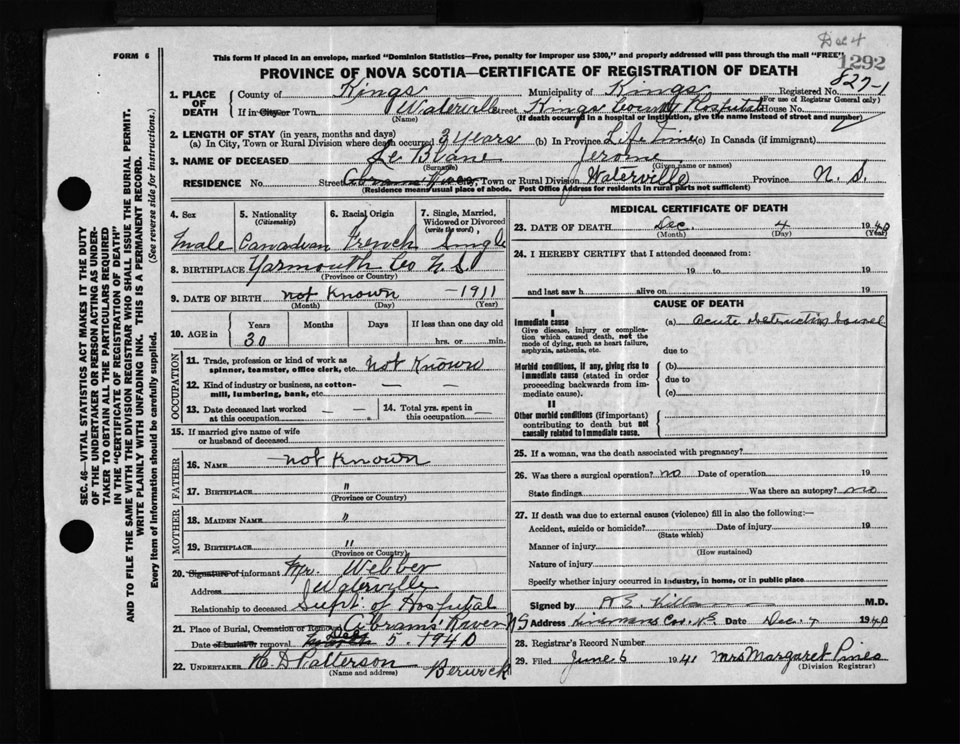 Dec 4
1292
827-1
FORM 6
This form if placed in an envelope, marked "Dominion Statistics—Free, penalty for improper use $300," and properly addressed will pass through the mail "FREE"
PROVINCE OF NOVA SCOTIA—CERTIFICATE OF REGISTRATION OF DEATH
1. PLACE OF DEATH
County of Kings Municipality of Kings Registered No.
(For use of Registrar General only)
If in City or Town Waterville Street Kings County Hospital House No.
(Name) (If death occurred in a hospital or institution, give the name instead of street and number)
2. LENGTH OF STAY (in years, months and days)
(a) In City, Town or Rural Division where death occurred 3 years (b) In Province Life Time (c) In Canada (if immigrant)
3. NAME OF DECEASED Le Blanc Jerome
(Surname) (Given name or names)
RESIDENCE No. Street City, Town or Rural Division Waterville Province N. S.
(Residence means usual place of abode. Post Office Address for residents in rural parts not sufficient)
4. Sex
male
5. Nationality
(Citizenship)
Canadian
6. Racial Origin
French
7. Single, Married, Widowed or Divorced
(write the word)
Single
8. BIRTHPLACE Yarmouth Co N S
(Province or Country)
9. DATE OF BIRTH not Known -1911
(Month) (Day) (Year)
10. AGE in Years Months Days If less than one day old
30 hrs. or min.
OCCUPATION
11. Trade, profession or kind of work as spinner, teamster, office clerk, etc. not Known
12. Kind of industry or business, as cotton-mill, lumbering, bank, etc. — —
13. Date deceased last worked at this occupation — —
14. Total yrs. spent in this occupation —
15. If married give name of wife or husband of deceased
FATHER
16. NAME —not Known
17. BIRTHPLACE "
(Province or Country)
MOTHER
18. MAIDEN NAME "
19. BIRTHPLACE "
(Province or Country)
20. Signature of informant Mr. Webber
Address Waterville
Relationship to deceased Supt. of Hospital
21. Place of Burial, Cremation or Removal Abrams River N S
Date of burial or removal Dec 5. 1940
22. UNDERTAKER H. D Patterson Berwick
(Name and address)
MEDICAL CERTIFICATE OF DEATH
23. DATE OF DEATH Dec. 4 1940
(Month) (Day) (Year)
24. I HEREBY CERTIFY that I attended deceased from:
19 to 19
and last saw h alive on 19
CAUSE OF DEATH
I
Immediate cause
Give disease, injury or complication which caused death, not the mode of dying, such as heart failure, asphyxia, asthenia, etc.
(a) acute obstruction bowel
due to
Morbid conditions, if any, giving rise to immediate cause (stated in order proceeding backwards from immediate cause).
(b)
due to
(c)
II
Other morbid conditions (if important) contributing to death but not causally related to immediate cause.
25. If a woman, was the death associated with pregnancy?
26. Was there a surgical operation? no Date of operation 19
State findings Was there an autopsy? no
27. If death was due to external causes (violence) fill in also the following:—
Accident, suicide or homicide? Date of injury 19
(State which)
Manner of injury
(How sustained)
Nature of injury
Specify whether injury occurred in industry, in home, or in public place
Signed by M.D.
Address N.S. Date Dec. 4 1940
28. Registrar's Record Number
29. Filed June 6 1941 Mrs Margaret Pines
(Division Registrar)
SEC. 46—VITAL STATISTICS ACT MAKES IT THE DUTY
OF THE UNDERTAKER OR PERSON ACTING AS UNDER-
TAKER TO OBTAIN ALL THE PARTICULARS REQUIRED
IN THE "CERTIFICATE OF REGISTRATION OF DEATH"
AND TO FILE THE SAME WITH THE DIVISION REGISTRAR WHO SHALL ISSUE THE BURIAL PERMIT.
WRITE PLAINLY WITH UNFADING INK. THIS IS A PERMANENT RECORD.
Every item of information should be carefully supplied. (See reverse side for instructions.)